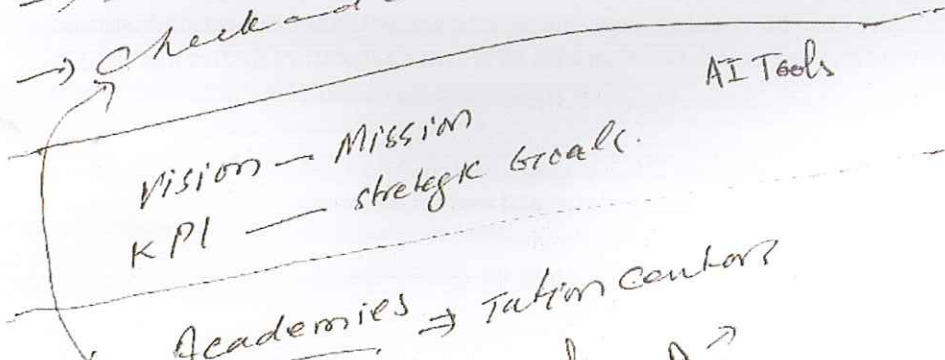 → Check and
AI Tools
Vision — Mission
KPI — stretegic Goals.
Academies ⇒ Tution Centors